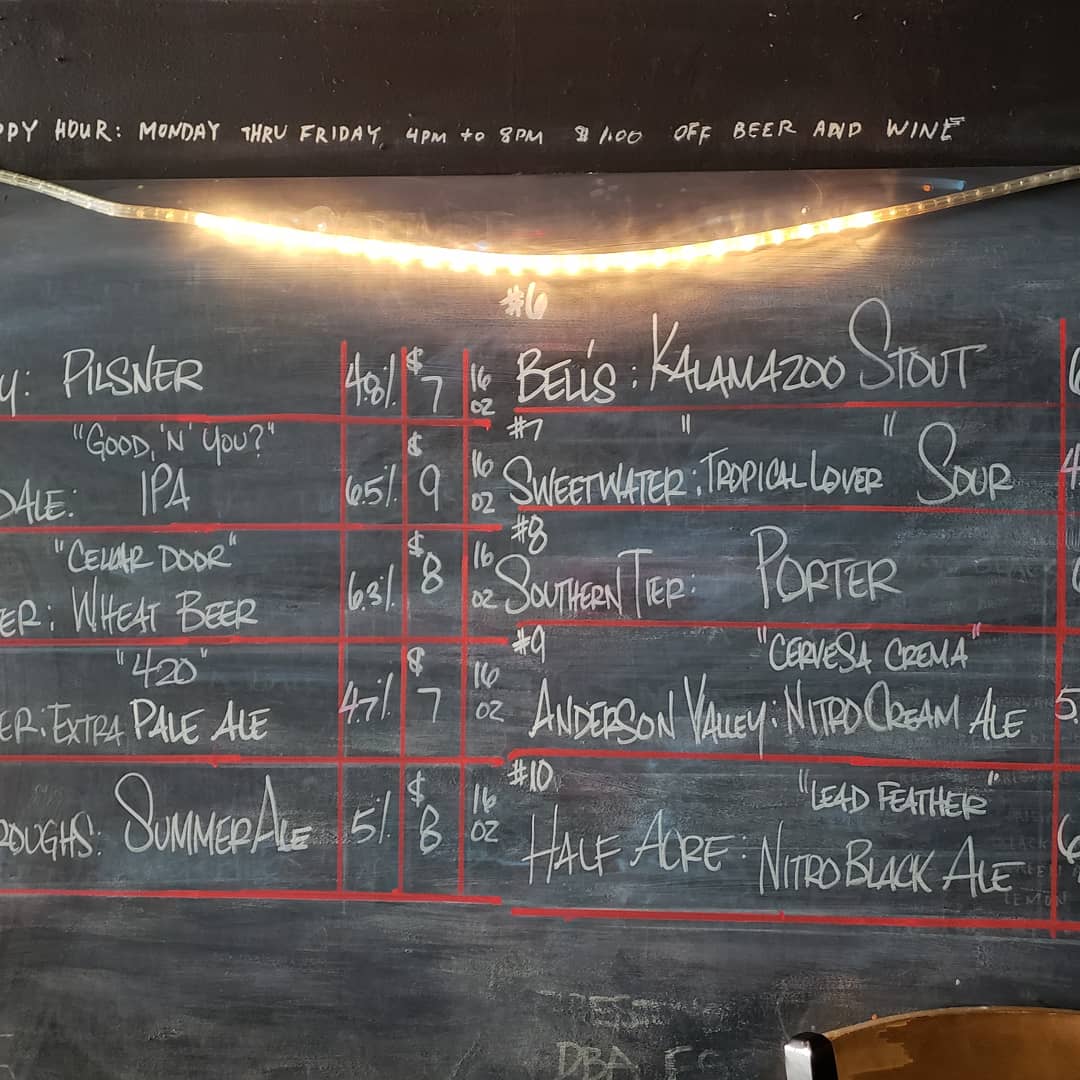 PPY HOUR: MONDAY THRU FRIDAY 4PM to 8PM $1.00 OFF BEER AND WINE
Y: PILSNER 4.8% $7 16 OZ
"GOOD, 'N' YOU?"
DALE: IPA 6.5% $9 16 OZ
"CELLAR DOOR"
ER: WHEAT BEER 6.3% $8 16 OZ
"420"
ER: EXTRA PALE ALE 4.7% $7 16 OZ
ROUGHS: SUMMER ALE 5% $8 16 OZ
#6
BELL'S: KALAMAZOO STOUT 6
#7 " "
SWEETWATER: TROPICAL LOVER SOUR 4
#8
SOUTHERN TIER: PORTER
#9 "CERVESA CREMA"
ANDERSON VALLEY: NITRO CREAM ALE 5.
#10 "LEAD FEATHER"
HALF ACRE: NITRO BLACK ALE 6
DBA